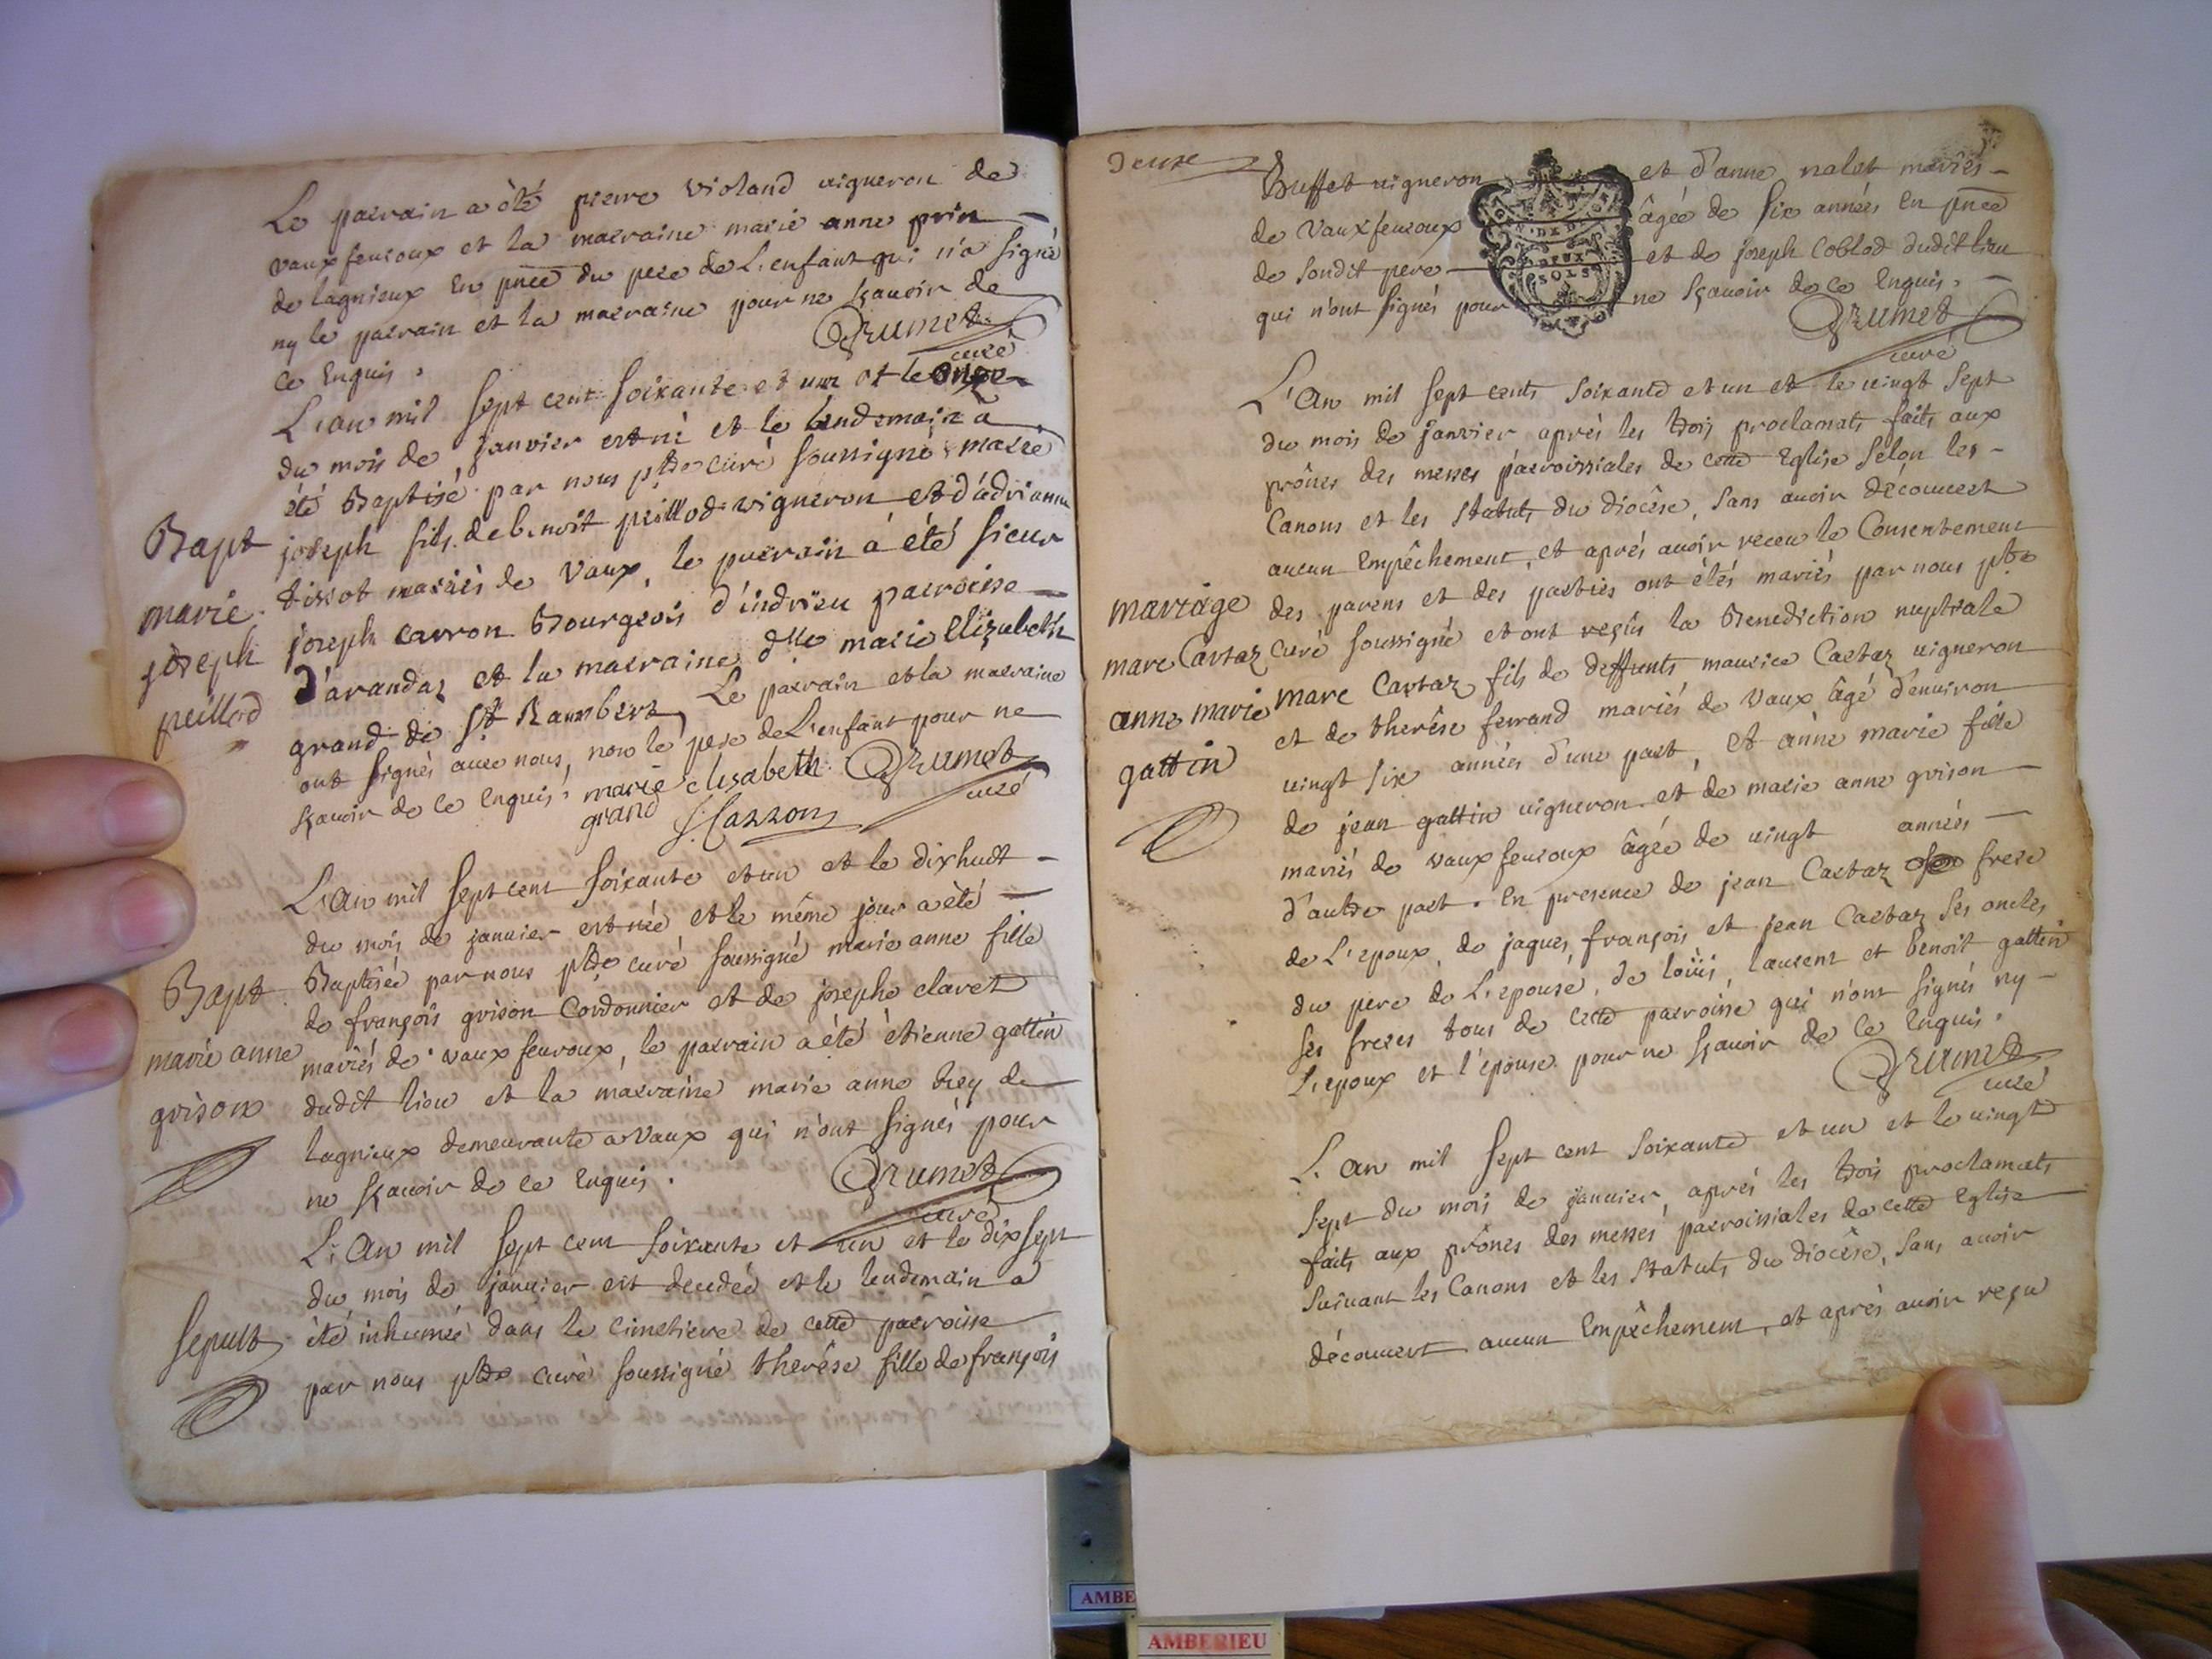 Le parrain a été pierre violand vigneron de
vaux feuroux et la marraine marie anne prin
de lagnieux En pnce du pere de L'enfant qui n'a signé
ny le parrain et la marraine pour ne sçavoir de
ce Enquis.
Grumet
curé
L'an mil sept cent soixante et un et le onze
du mois de janvier est né et le lendemain a
été Baptisé par nous ptre curé soussigné marie
joseph fils de benoit peillod vigneron et d'adrianne
tissot mariés de Vaux, le parrain a été sieur
joseph carron Bourgeois d'indrieu parroisse
d'arandaz et la marraine dlle marie Elizabeth
grand de St Rambert, Le parrain et la marraine
ont signés avec nous, non le pere de L'enfant pour ne
sçavoir de ce Enquis,
marie elisabeth
grand
J. Carron
Grumet
curé
Bapt
marie
joseph
peillod
L'an mil sept cent soixante et un et le dixhuit
du mois de janvier est née et le même jour a été
Baptisée par nous ptre curé soussigné marie anne fille
de françois grison Cordonnier et de josephe claret
mariés de vaux feuroux, le parrain a été étienne gattin
dudit lieu et la marraine marie anne brey de
lagnieux demeurante a Vaux qui n'ont signés pour
ne sçavoir de ce Enquis.
Grumet
curé
Bapt
marie anne
grison
L'an mil sept cent soixante et un et le dix sept
du mois de janvier est decedée et le lendemain a
été inhumée dans le cimetiere de cette parroisse
par nous ptre curé soussigné therése fille de françois
sepult
deuxe
Buffet vigneron et d'anne nalet mariés
de Vaux feuroux âgée de six années En pnce
de sondit pere et de joseph Coblod dudit lieu
qui n'ont signés pour ne sçavoir de ce Enquis.
DEUX
SOLS
Grumet
curé
L'an mil sept cents soixante et un et le vingt sept
du mois de janvier aprés les trois proclamats faits aux
prônes des messes parroissiales de cette Eglise selon les
Canons et les statuts du diocêse, sans avoir découvert
aucun Empêchement, et aprés avoir receu le Consentement
des parens et des parties ont étés mariés par nous ptre
curé soussigné et ont reçus la Benediction nuptiale
marc Cartaz fils de deffunts maurice Cartaz vigneron
et de therése ferrand mariés de Vaux âgé d'environ
vingt six années d'une part, et anne marie fille
de jean gattin vigneron et de marie anne grison
mariés de vaux feuroux âgée de vingt années
d'autre part. En presence de jean Cartaz frere
de L'epoux, de jaques, françois et jean Cartaz ses oncles
du pere de L'epouse, de loüis, laurent et benoit gattin
ses freres tous de cette parroisse qui n'ont signés ny
L'epoux et l'épouse pour ne sçavoir de ce Enquis.
Grumet
curé
mariage
marc Cartaz
anne marie
gattin
L'an mil sept cent soixante et un et le vingt
sept du mois de janvier, aprés les trois proclamats
faits aux prônes des messes parroissiales de cette Eglise
suivant les Canons et les statuts du diocêse, sans avoir
découvert aucun Empêchement, et aprés avoir reçu
AMBE
AMBERIEU